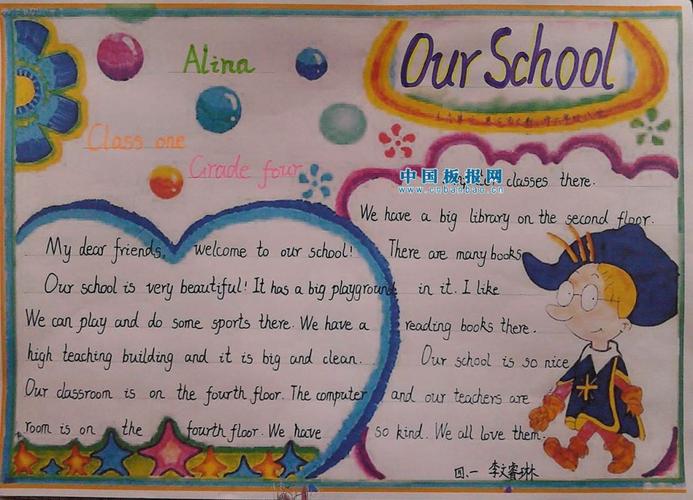 Our School
Alina
Class one
Grade four
中国板报网
www.cnbanbao.cn
My dear friends, welcome to our school!
Our school is very beautiful! It has a big playground
We can play and do some sports there. We have a
high teaching building and it is big and clean.
Our classroom is on the fourth floor. The computer
room is on the fourth floor. We have
classes there.
We have a big library on the second floor.
There are many books
in it. I like
reading books there.
Our school is so nice
and our teachers are
so kind. We all love them.
四.一 李文睿琳